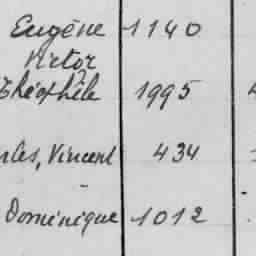 Eugène 1140
Victor
Théophile 1995
rles, Vincent 434
Dominique 1012